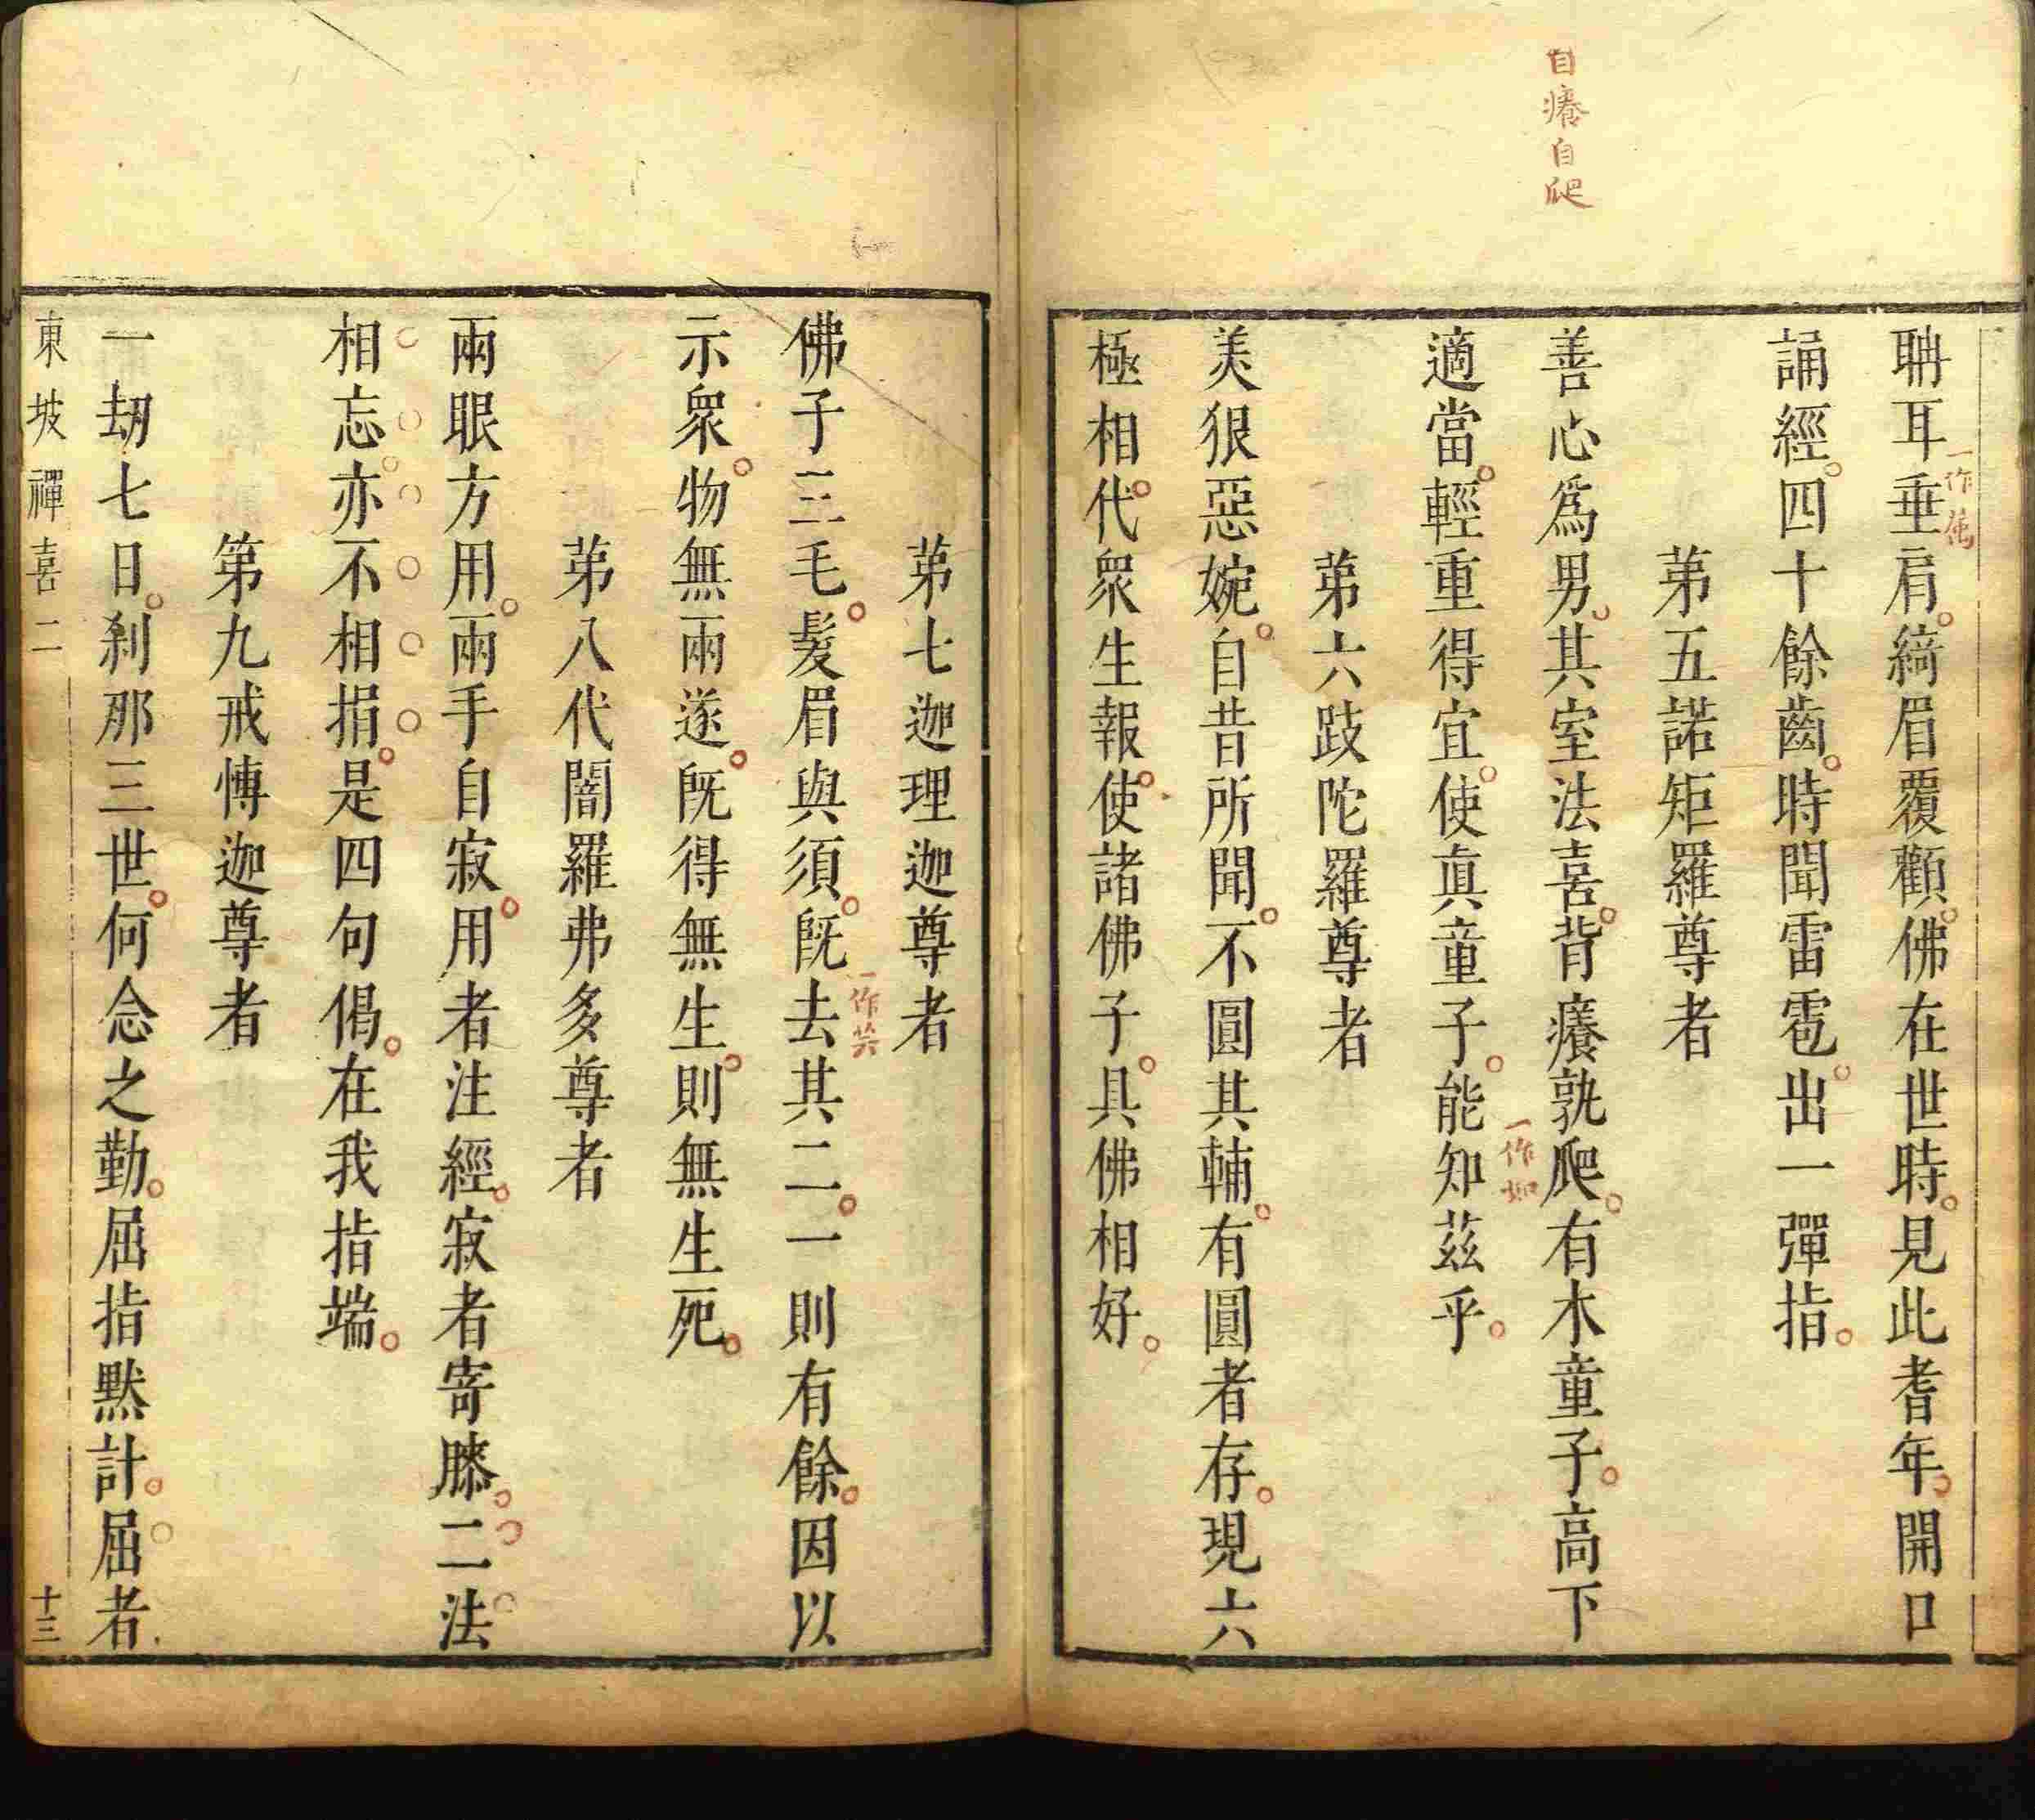 自癢自爬
聃耳垂肩綺眉覆顴佛在世時見此耆年開口
一作屬
誦經四十餘齒時聞雷雹出一彈指
苐五諾矩羅尊者
善心爲男其室法喜背癢孰爬有木童子高下
適當輕重得宜使真童子能知茲乎
一作如
苐六䟦陀羅尊者
美狠惡婉自昔所聞不圓其輔有圓者存現六
極相代衆生報使諸佛子具佛相好
苐七迦理迦尊者
佛子三毛髮眉與須旣去其二一則有餘因以
一作芸
示衆物無兩遂旣得無生則無生死
苐八代闍羅弗多尊者
兩眼方用兩手自寂用者注經寂者寄膝二法
相忘亦不相捐是四句偈在我指端
第九戒慱迦尊者
一刼七日刹那三世何念之勤屈指黙計屈者
東坡禪喜二
十三